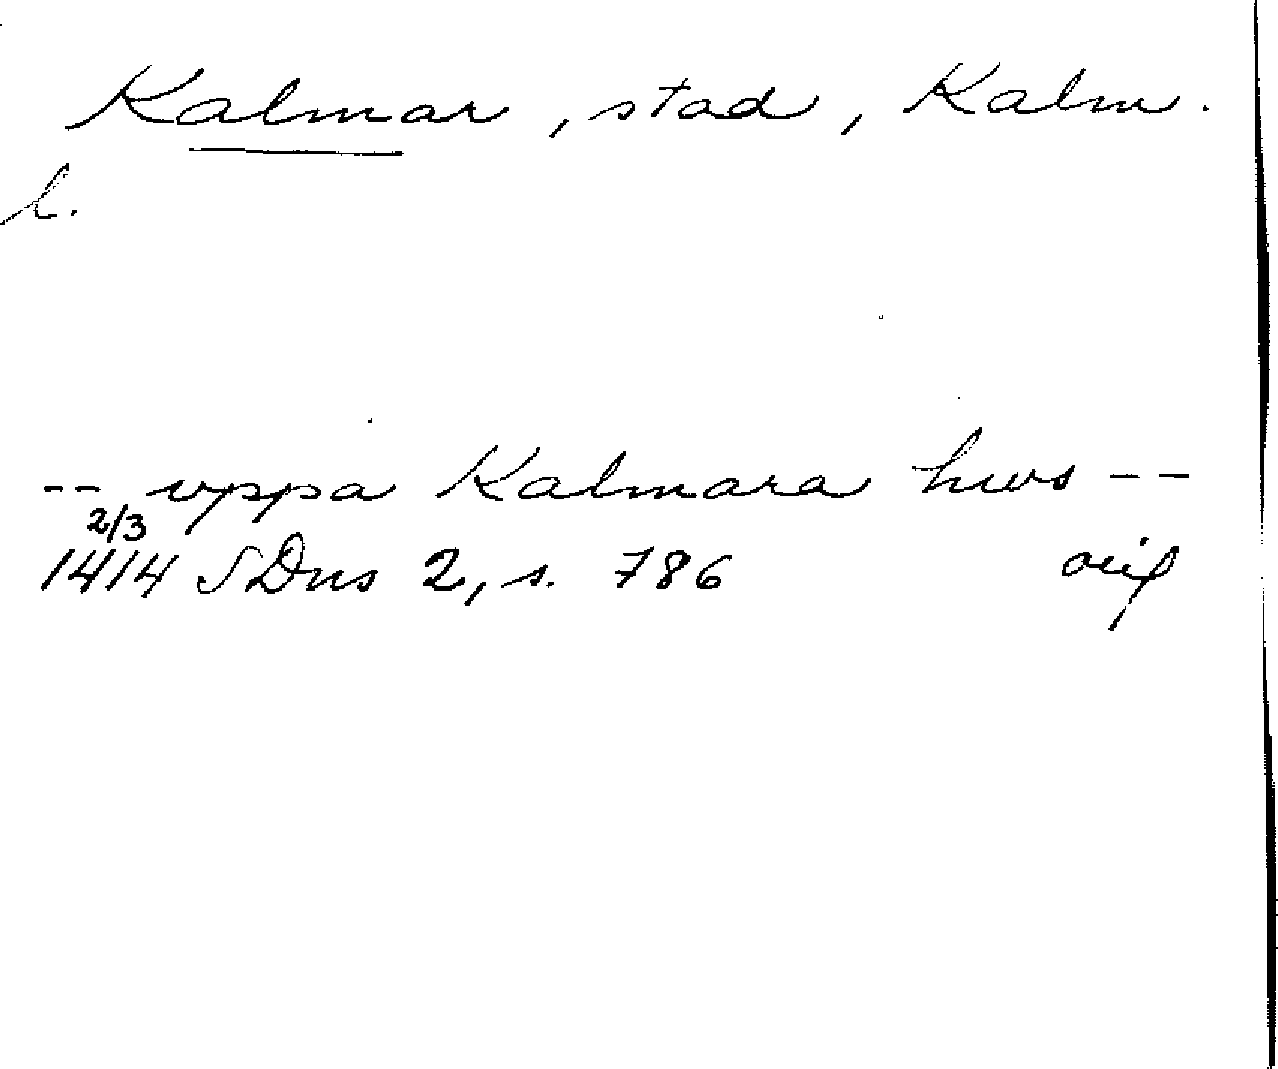 Kalmar, stad, Kalm.
l.
-- vppa Kalmara hws --
2/3
1414 SDns 2, s. 786 orig